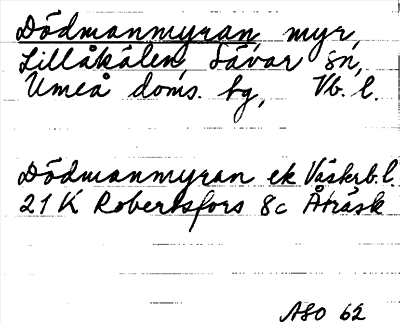 Dödmanmyran, myr,
Lillåkälen, Sävar sn,
Umeå doms. bg, Vb. l.
Dödmanmyran ek Västerb. l.
21 K Robertsfors 8c Åträsk
ASO 62